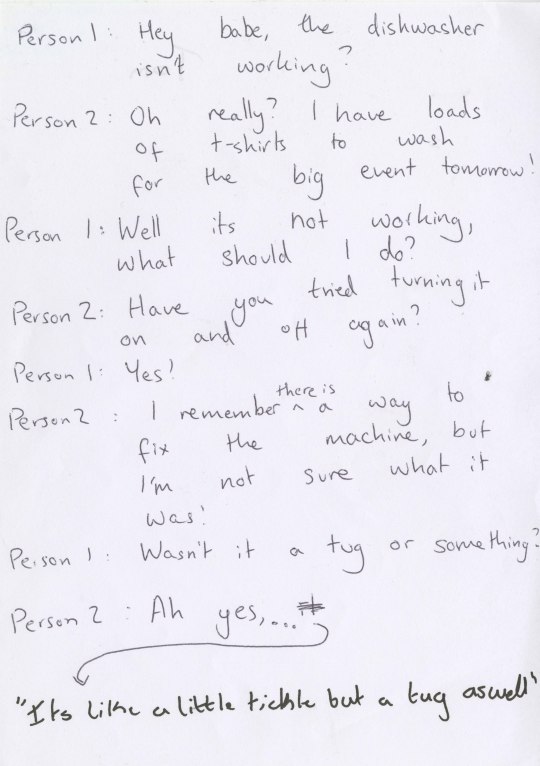 Person 1: Hey babe, the dishwasher
isn't working?
Person 2: Oh really? I have loads
of t-shirts to wash
for the big event tomorrow!
Person 1: Well its not working,
what should I do?
Person 2: Have you tried turning it
on and off again?
Person 1: Yes!
Person 2: I remember ^ there is a way to
fix the machine, but
I'm not sure what it
was!
Person 1: Wasn't it a tug or something?
Person 2: Ah yes,...
"Its like a little tickle but a tug aswell"